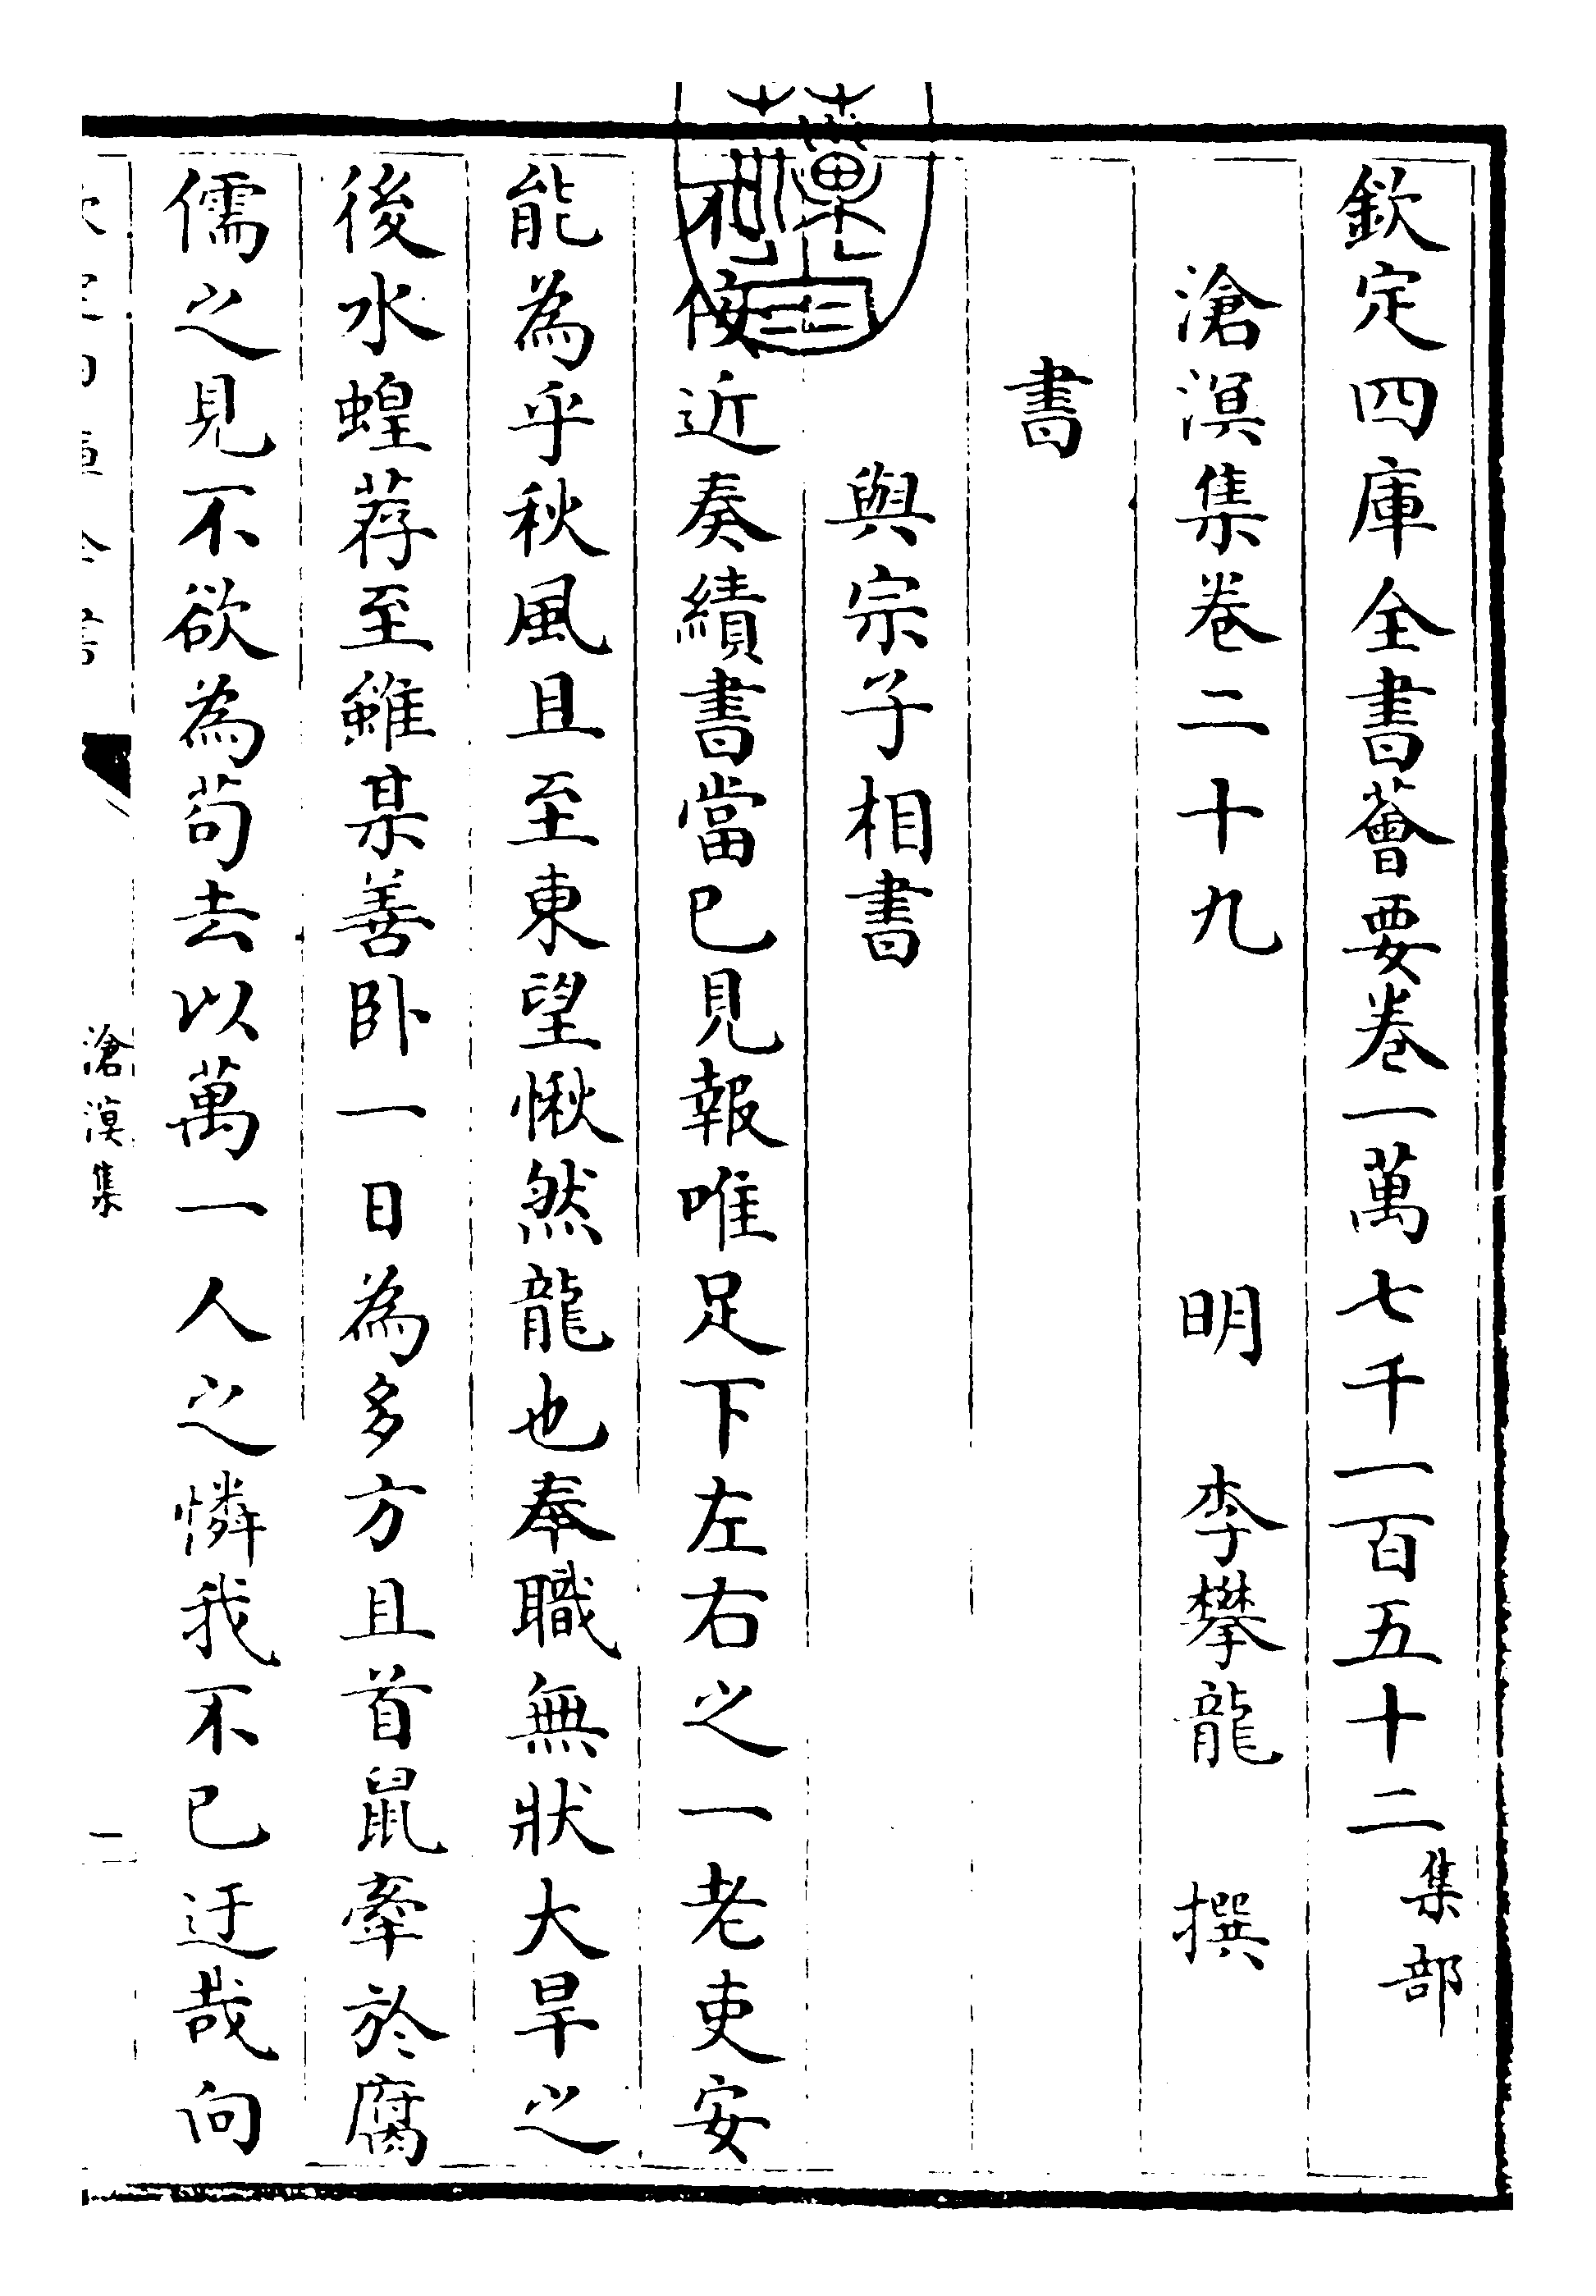 欽定四庫全書薈要卷一萬七千一百五十二集部
滄溟集卷二十九
明 李攀龍 撰
書
與宗子相書
不佞近奏績書當已見報唯足下左右之一老吏安
能為乎秋風且至東望愀然龍也奉職無狀大旱之
後水蝗荐至雖某善卧一日為多方且首鼠牽於腐
儒之見不欲為苟去以萬一人之憐我不已迂哉向
滄溟集
一